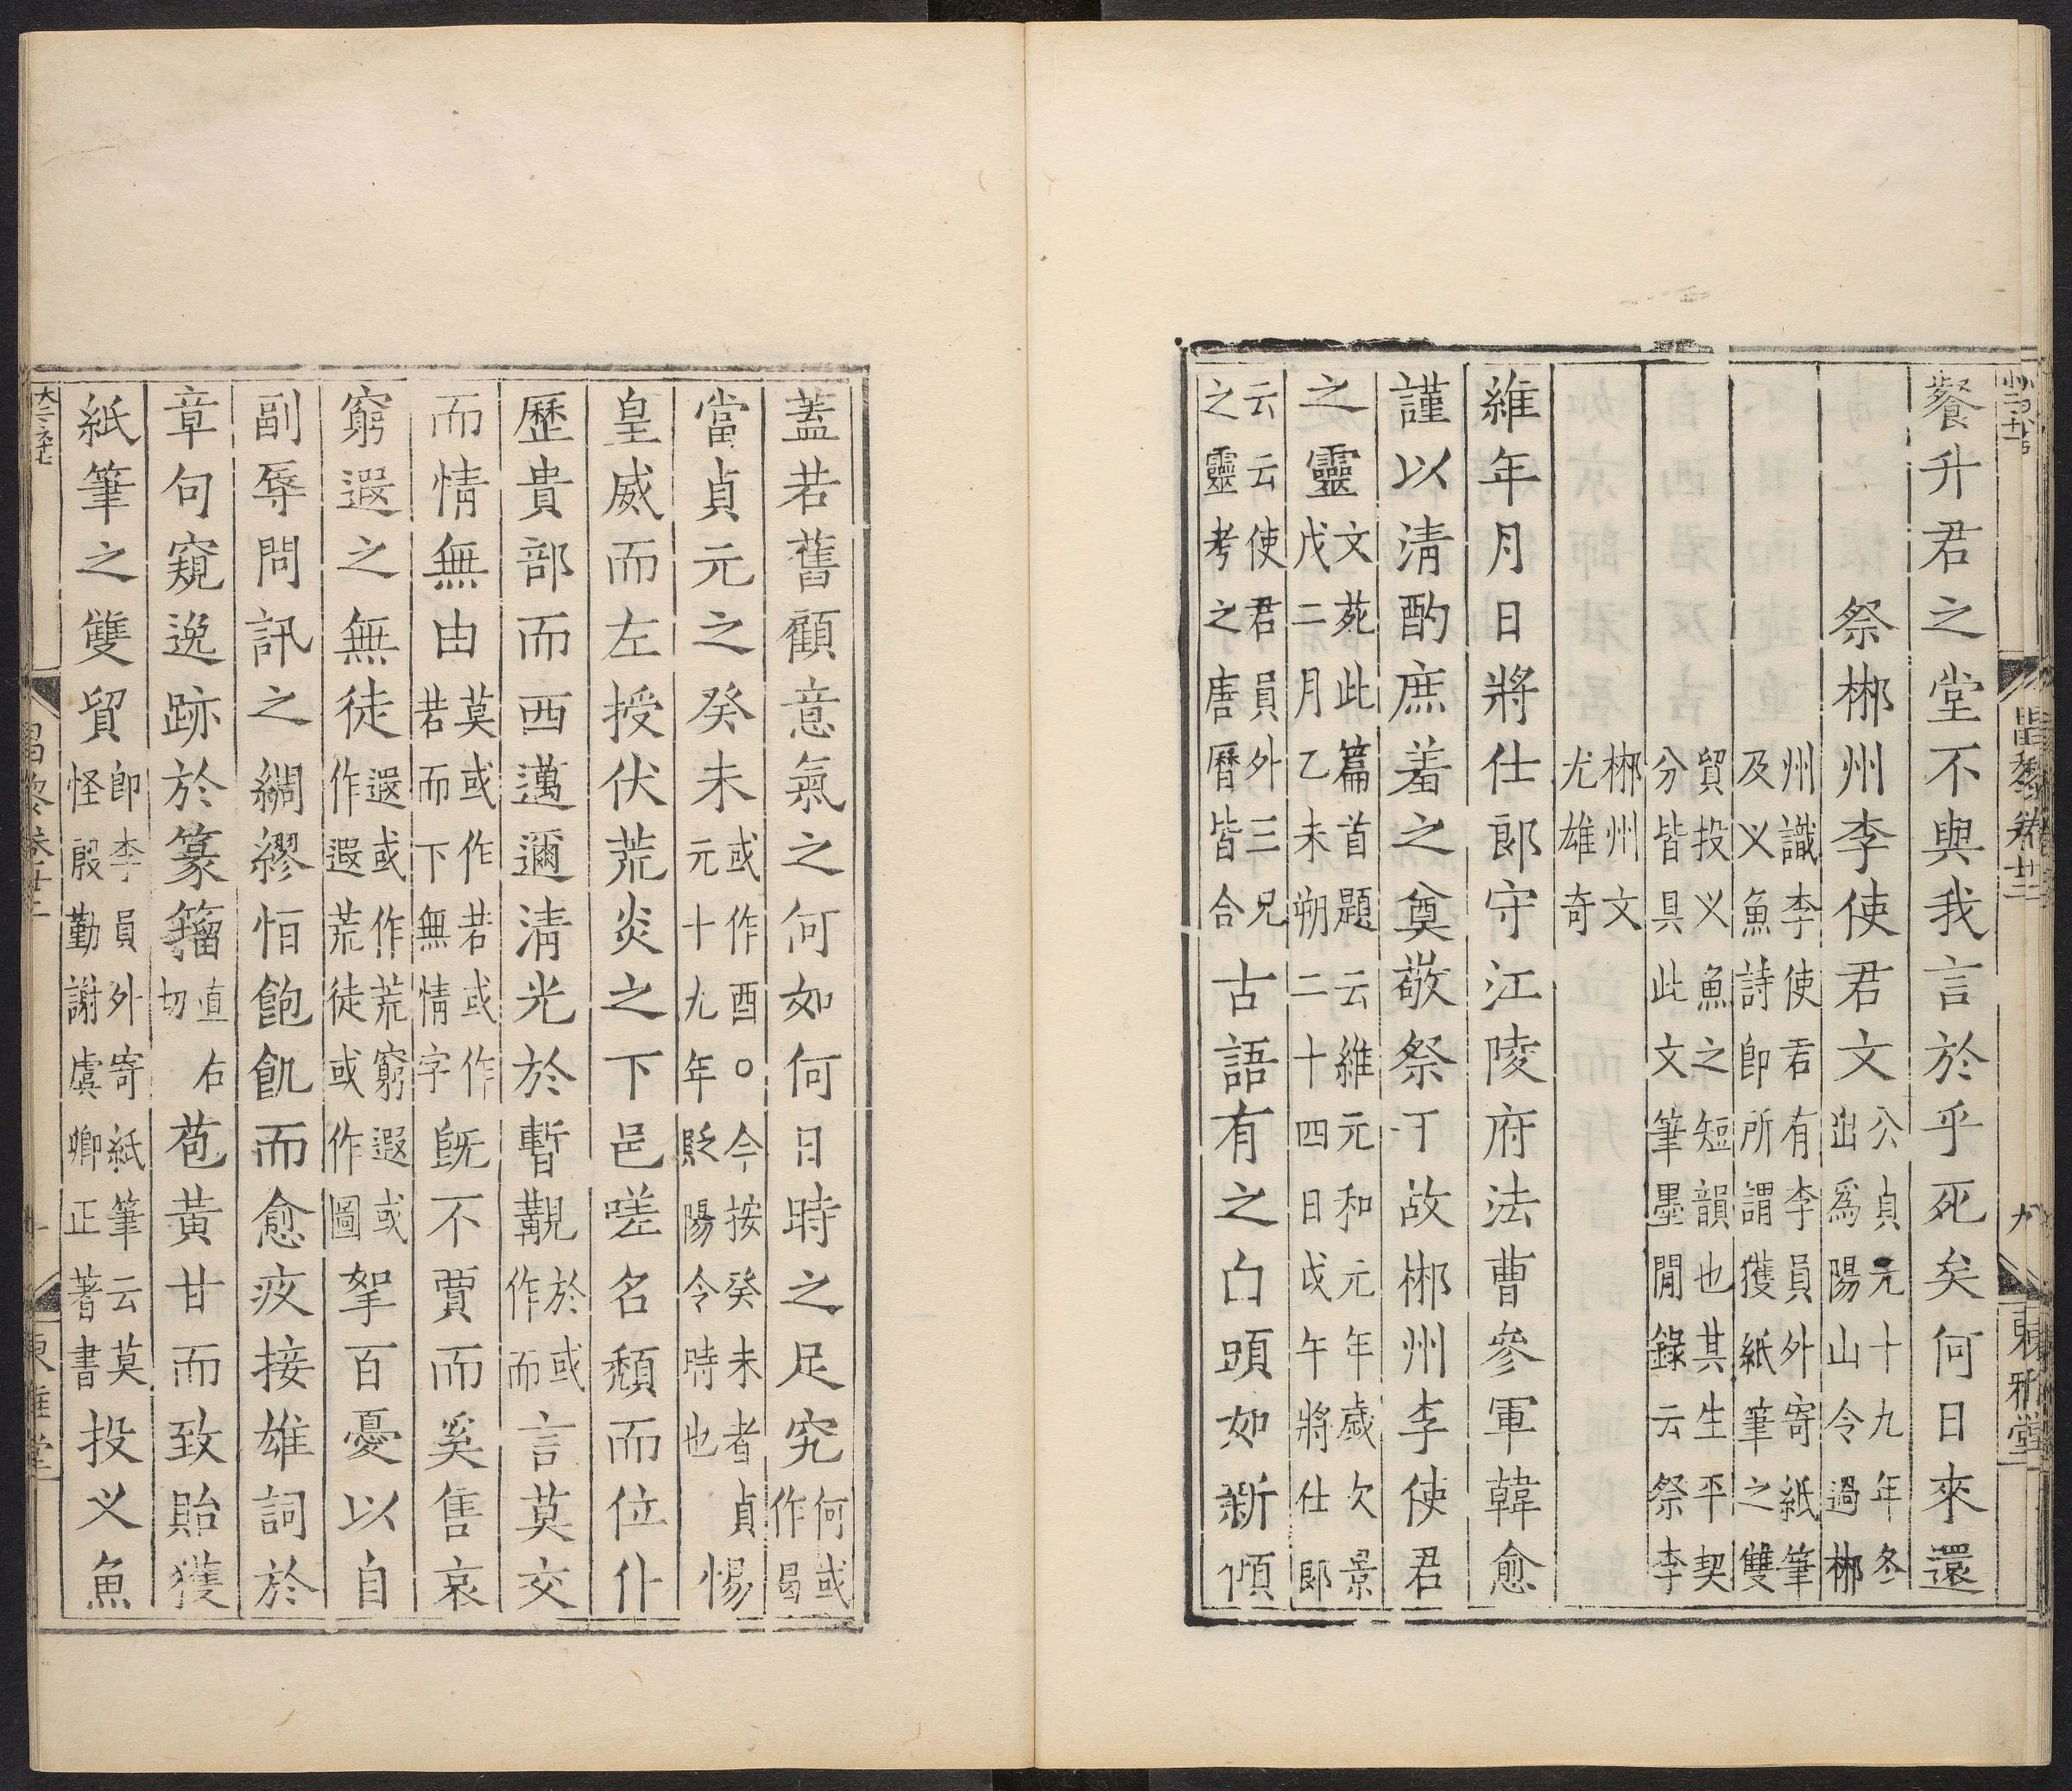 餮升君之堂不與我言於乎死矣何日來還
祭郴州李使君文
公貞元十九年冬
出為陽山令過郴
州識李使君有李員外寄紙筆
及乂魚詩即所謂獲紙筆之雙
貿投乂魚之短韻也其生平契
分皆具此文筆墨閒錄云祭李
郴州文
尤雄奇
維年月日將仕郎守江陵府法曹參軍韓愈
謹以清酌庶羞之奠敬祭于故郴州李使君
之靈
文苑此篇首題云維元和元年歲次景
戌二月乙未朔二十四日戊午將仕郎
云云使君員外三兄
之靈考之唐曆皆合
古語有之白頭如新傾
昌黎卷廿三
九
東雅堂
蓋若舊顧意氣之何如何日時之足究
何或
作曷
當貞元之癸未
或作酉○今按癸未者貞
元十九年貶陽令時也
惕
皇威而左授伏荒炎之下邑嗟名頹而位仆
歷貴部而西邁邇清光於暫覯
於或
作而
言莫交
而情無由
莫或作若或作
若而下無情字
既不賈而奚售哀
窮遐之無徒
遐或作荒窮遐或
作遐荒徒或作圖
挐百憂以自
副辱問訊之綢繆恒飽飢而愈疚接雄詞於
章句窺逸跡於篆籀
直右
切
苞黃甘而致貽獲
紙筆之雙貿
即李員外寄紙筆云莫
怪殷勤謝虞卿正著書
投乂魚